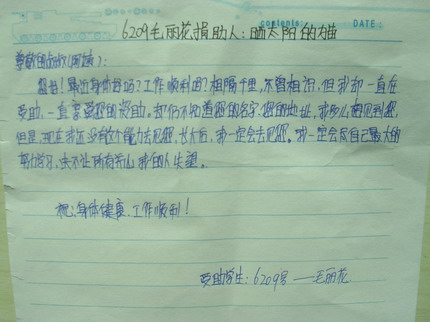 contents: DATE:
6209毛丽花捐助人:晒太阳的猫
尊敬的叔叔(阿姨):
您好!最近身体好吗?工作顺利吗?相隔千里,未曾相识,但我却一直在
受助,一直享受您的资助。却仍不知道您的名字,您的地址,我多么想见到您,
但是,现在我还没有这个能力去见您,长大后,我一定会去见您。我一定会尽自己最大的
努力学习,来不让所有关心我的人失望。
祝:身体健康、工作顺利!
受助学生:6209号——毛丽花